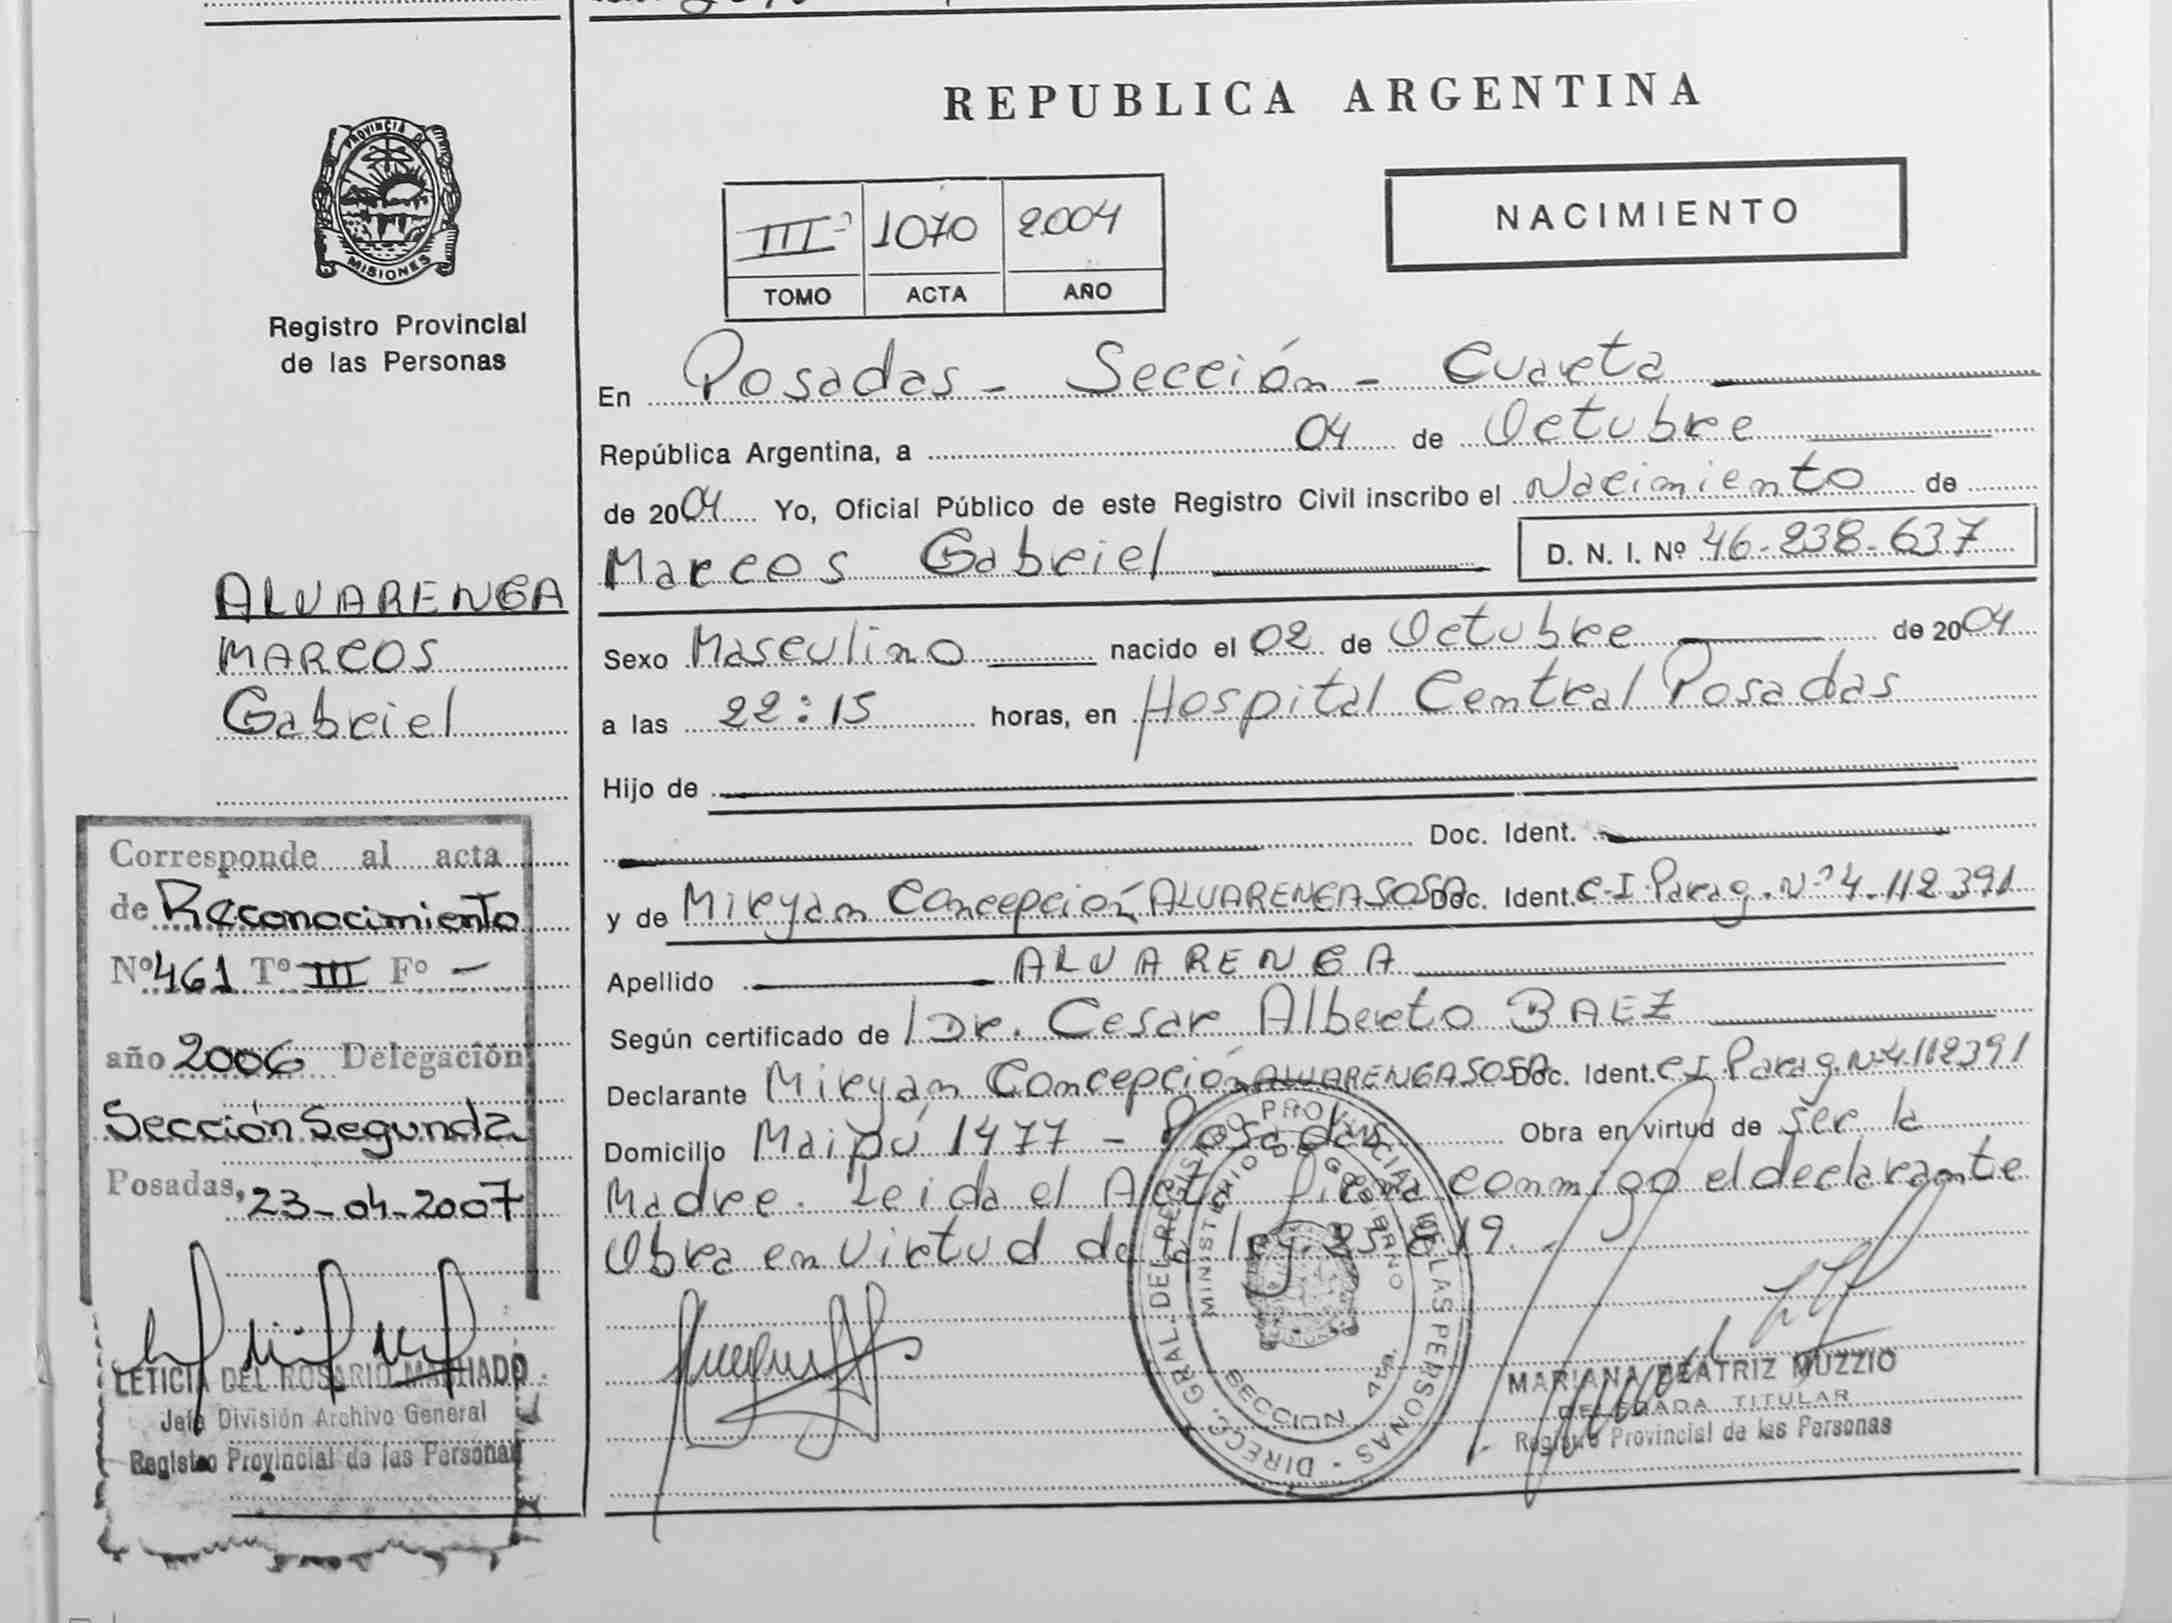 REPUBLICA ARGENTINA
PROVINCIA DE
MISIONES
Registro Provincial
de las Personas
NACIMIENTO
III 1070 2004
TOMO ACTA AÑO
En Posadas - Sección - Cuarta
República Argentina, a 04 de Octubre
de 2004 Yo, Oficial Público de este Registro Civil inscribo el Nacimiento de
Marcos Gabriel D. N. I. Nº 46-238-637
ALVARENGA
MARCOS
Gabriel
Sexo Masculino nacido el 02 de Octubre de 2004
a las 22:15 horas, en Hospital Central Posadas
Hijo de
Doc. Ident.
y de Miryam Concepción ALVARENGA SOSA Doc. Ident. C-I Parag. Nº 4.112391
Apellido ALVARENGA
Según certificado de Dr. Cesar Alberto BAEZ
Declarante Miryam Concepción ALVARENGA SOSA Doc. Ident. CI Parag. Nº 4.112391
Domicilio Maipú 1477 - Posadas Obra en virtud de ser la
Madre. Leida el Acta firma conmigo el declarante
Obra en virtud de la ley 25.819.
Corresponde al acta
de Reconocimiento
Nº 461 Tº III Fº -
año 2006 Delegación
Sección Segunda
Posadas, 23-04-2007
LETICIA DEL ROSARIO MACHADO
Jefe División Archivo General
Registro Provincial de las Personas
DIRECC. GRAL. DEL REGISTRO PROVINCIAL DE LAS PERSONAS
MINISTERIO DE GOBIERNO
SECCION 4ta.
MARIANA BEATRIZ MUZZIO
DELEGADA TITULAR
Registro Provincial de las Personas